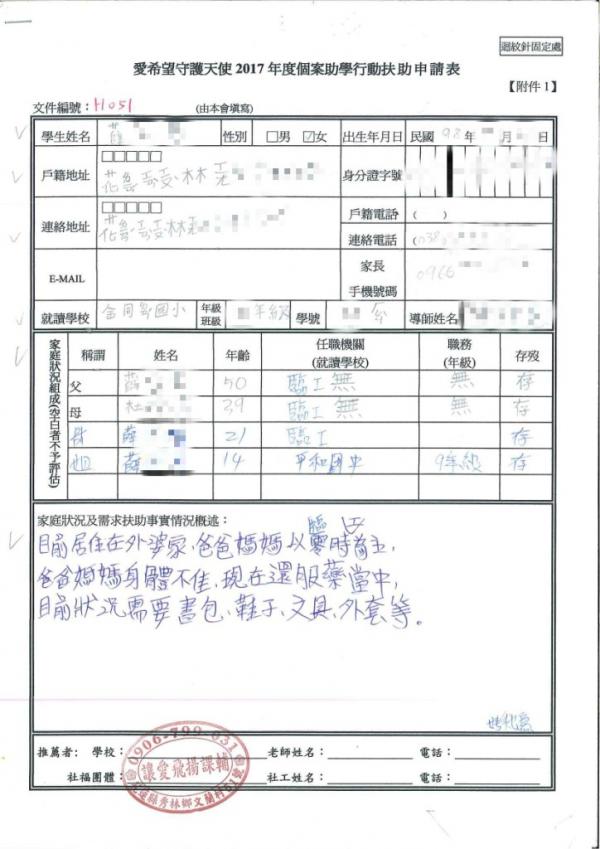 迴紋針固定處
愛希望守護天使 2017 年度個案助學行動扶助申請表
【附件 1】
文件編號：H051 (由本會填寫)
學生姓名 性別 □男 ☑女 出生年月日 民國 98 年
戶籍地址 □□□□□ 身分證字號
連絡地址 □□□□□ 戶籍電話 ( )
連絡電話 (038
E-MAIL 家長手機號碼 0966
就讀學校 國小 年級班級 年級 學號 導師姓名
家庭狀況組成(空白者不予評估)
稱謂 姓名 年齡 任職機關(就讀學校) 職務(年級) 存歿
父 50 臨工 無 無 存
母 杜 39 臨工 無 無 存
21 臨工 存
姐 14 平和國中 9年級 存
家庭狀況及需求扶助事實情況概述：
臨
目前居住在外婆家，爸爸媽媽以零時為主，
爸爸媽媽身體不佳，現在還服藥當中，
目前狀況需要書包、鞋子、文具、外套等。
推薦者: 學校： 老師姓名： 電話：
社福團體： 社工姓名： 電話：
0906-790-031
讓愛飛揚課輔
花蓮縣秀林鄉文蘭村